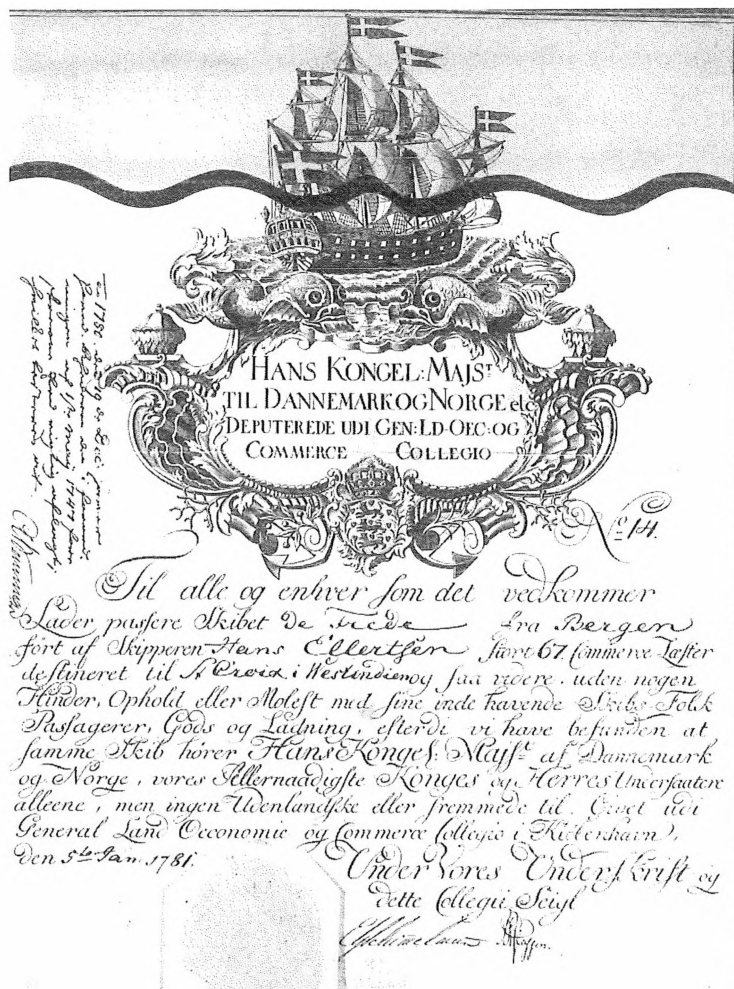 HANS KONGEL: MAJST
TIL DANNEMARK OG NORGE etc
DEPUTEREDE UDI GEN: LD OEC: OG
COMMERCE COLLEGIO
No 14.
Til alle og enhver som det vedkommer
Lader passere Skibet De Frede fra Bergen
fört af Skipperen Hans Ellertsen stort 67 Commerce Læster
destineret til St Croix i Westindien og saa videre, uden nogen
Hinder, Ophold eller Molest med sine inde havende Skibs-Folk
Passagerer, Gods og Ladning, efterdi vi have befunden at
samme Skib hører Hans Konges: Majst af Dannemark
og Norge, vores Allernaadigste Konges og Herres Undersaatere
alleene, men ingen Udenlandske eller fremmede til. Givet udi
General Land Oeconomie og Commerce Collegio i Kiöbenhavn,
den 5te Jan. 1781.
Under Vores Underskrift og
dette Collegii Seigl